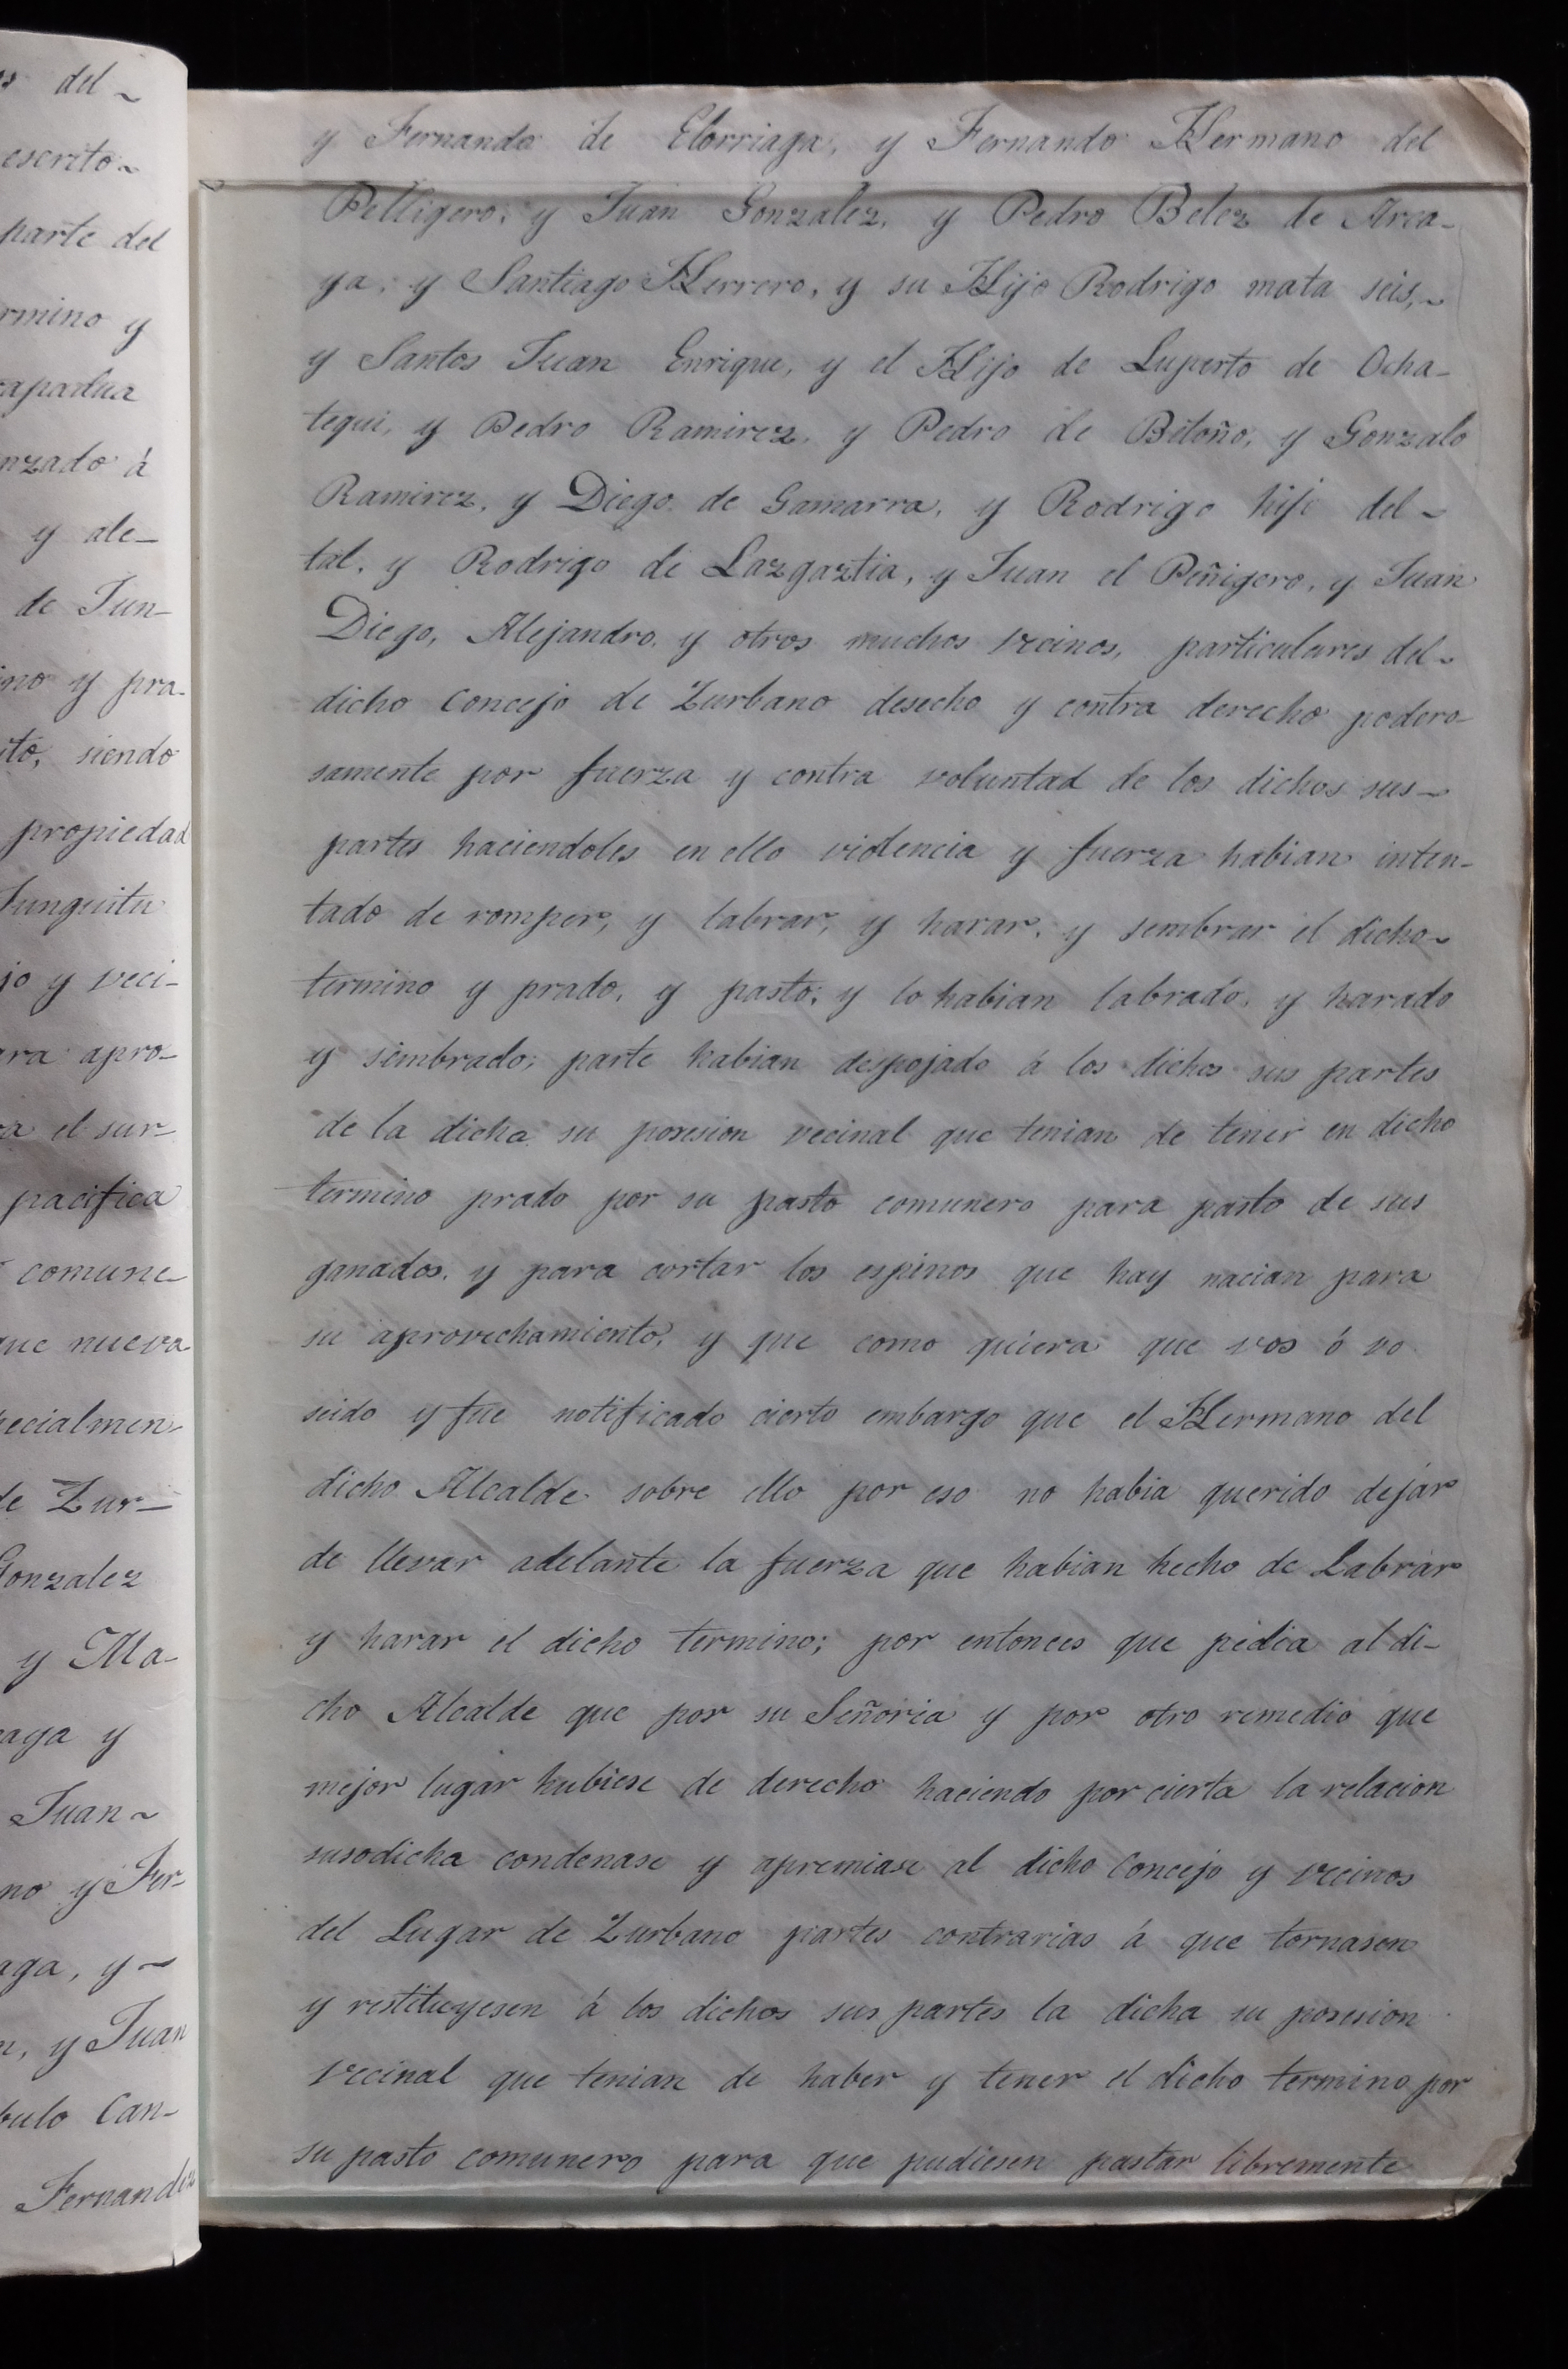 s del ~
escrito ~
parte del
rmino y
apadua
nzado á
y ale-
de Jun-
no y pra-
ito, siendo
propiedad
Junguitu
jo y veci-
ara apro-
a el sur-
pacifica
comune-
que nueva
pecialmen-
de Zur-
Gonzalez
y Ma-
aga y
Juan ~
no y Fer-
aga, y ~
n, y Juan
bulo Can-
Fernandez
y Fernando de Elorriaga, y Fernando Hermano del
Pelligero, y Juan Gonzalez, y Pedro Belez de Arca-
ya, y Santiago Herrero, y su Hijo Rodrigo mata seis, ~
y Santos Juan Enrique, y el Hijo de Luperto de Ocha-
tegui, y Pedro Ramirez, y Pedro de Bitoño, y Gonzalo
Ramirez, y Diego de Gamarra, y Rodrigo hijo del ~
tal, y Rodrigo de Lazgaztia, y Juan el Peñigero, y Juan
Diego, Alejandro, y otros muchos vecinos, particulares del ~
dicho Concejo de Zurbano desecho y contra derecho podero-
samente por fuerza y contra voluntad de los dichos sus ~
partes haciendoles en ello violencia y fuerza habian inten-
tado de romper, y labrar, y harar, y sembrar el dicho ~
termino y prado, y pasto; y lo habian labrado, y harado
y sembrado; parte habian despojado á los dichos sus partes
de la dicha su posesion vecinal que tenian de tener en dicho
termino prado por su pasto comunero para pasto de sus
ganados, y para cortar los espinos que hay nacian para
su aprovechamiento, y que como quiera que vos ó vo
seido y fue notificado cierto embargo que el Hermano del
dicho Alcalde sobre ello por eso no habia querido dejar
de llevar adelante la fuerza que habian hecho de Labrar
y harar el dicho termino; por entonces que pidia al di-
cho Alcalde que por su Señoria y por otro remedio que
mejor lugar hubiese de derecho haciendo por cierta la relacion
susodicha condenase y apremiase al dicho Concejo y vecinos
del Lugar de Zurbano partes contrarias á que tornasen
y restituyesen á los dichos sus partes la dicha su posesion
vecinal que tenian de haber y tener el dicho termino por
su pasto comunero para que pudiesen pastar libremente